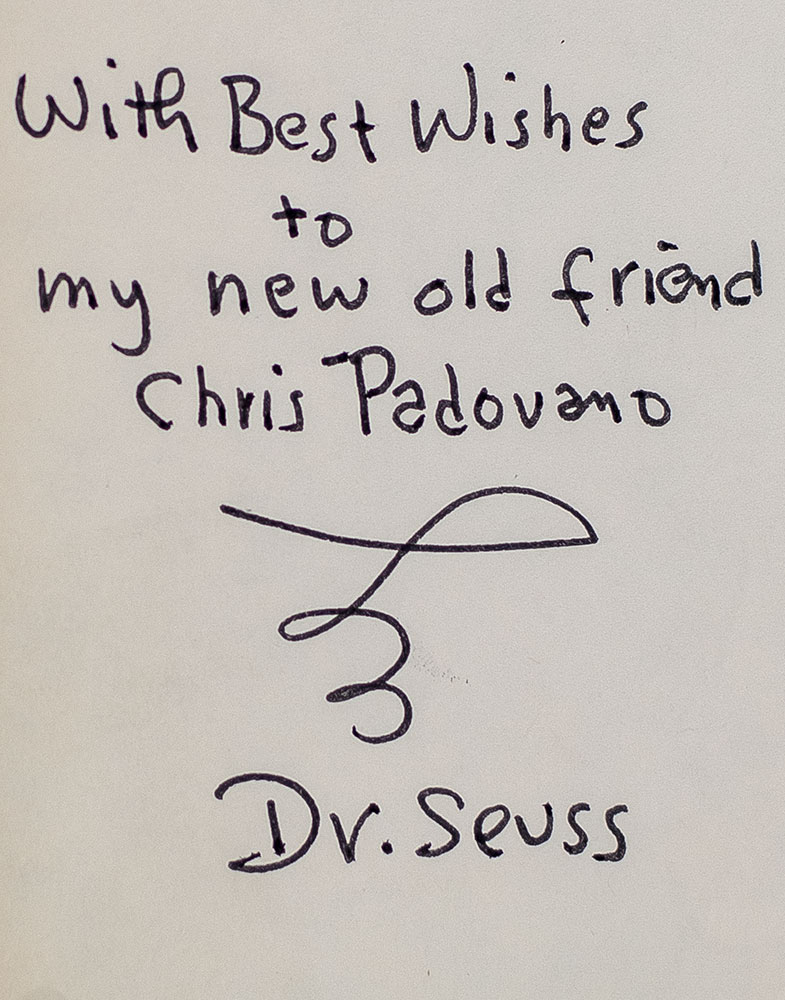 With Best Wishes
to
my new old friend
Chris Padovano
Dr. Seuss